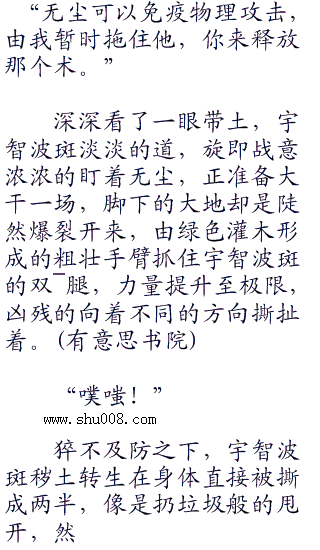 “无尘可以免疫物理攻击，
由我暂时拖住他，你来释放
那个术。”
深深看了一眼带土，宇
智波斑淡淡的道，旋即战意
浓浓的盯着无尘，正准备大
干一场，脚下的大地却是陡
然爆裂开来，由绿色灌木形
成的粗壮手臂抓住宇智波斑
的双¯腿，力量提升至极限，
凶残的向着不同的方向撕扯
着。(有意思书院)
“噗嗤！”
www.shu008.com
猝不及防之下，宇智波
斑秽土转生在身体直接被撕
成两半，像是扔垃圾般的甩
开，然